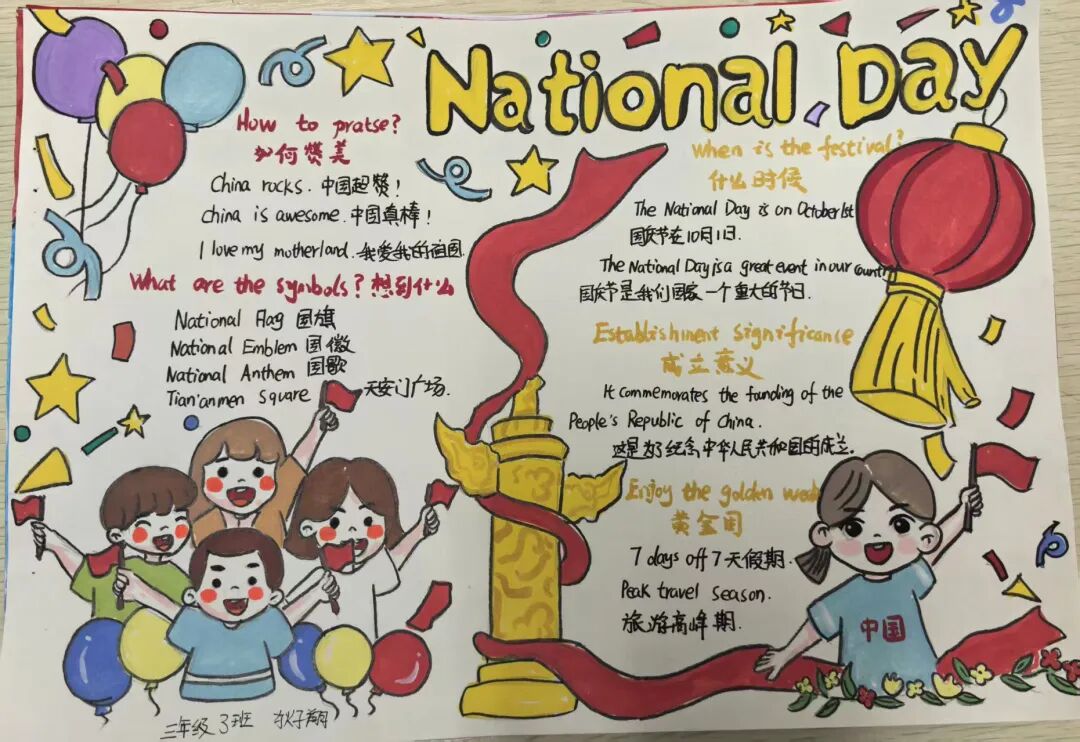 National Day
How to pratse?
如何赞美
China rocks. 中国超赞!
China is awesome. 中国真棒!
I love my motherland. 我爱我的祖国.
What are the symbols? 想到什么
National Flag 国旗
National Emblem 国徽
National Anthem 国歌
Tian'anmen Square 天安门广场.
三年级 3班
When is the festival?
什么时候
The National Day is on October 1st
国庆节在10月1日.
The National Day is a great event in our country
国庆节是我们国家一个重大的节日.
Establishment significance
成立意义
It commemorates the founding of the
People's Republic of China.
这是为了纪念中华人民共和国的成立.
Enjoy the golden week
黄金周
7 days off 7天假期.
Peak travel season.
旅游高峰期.
中国